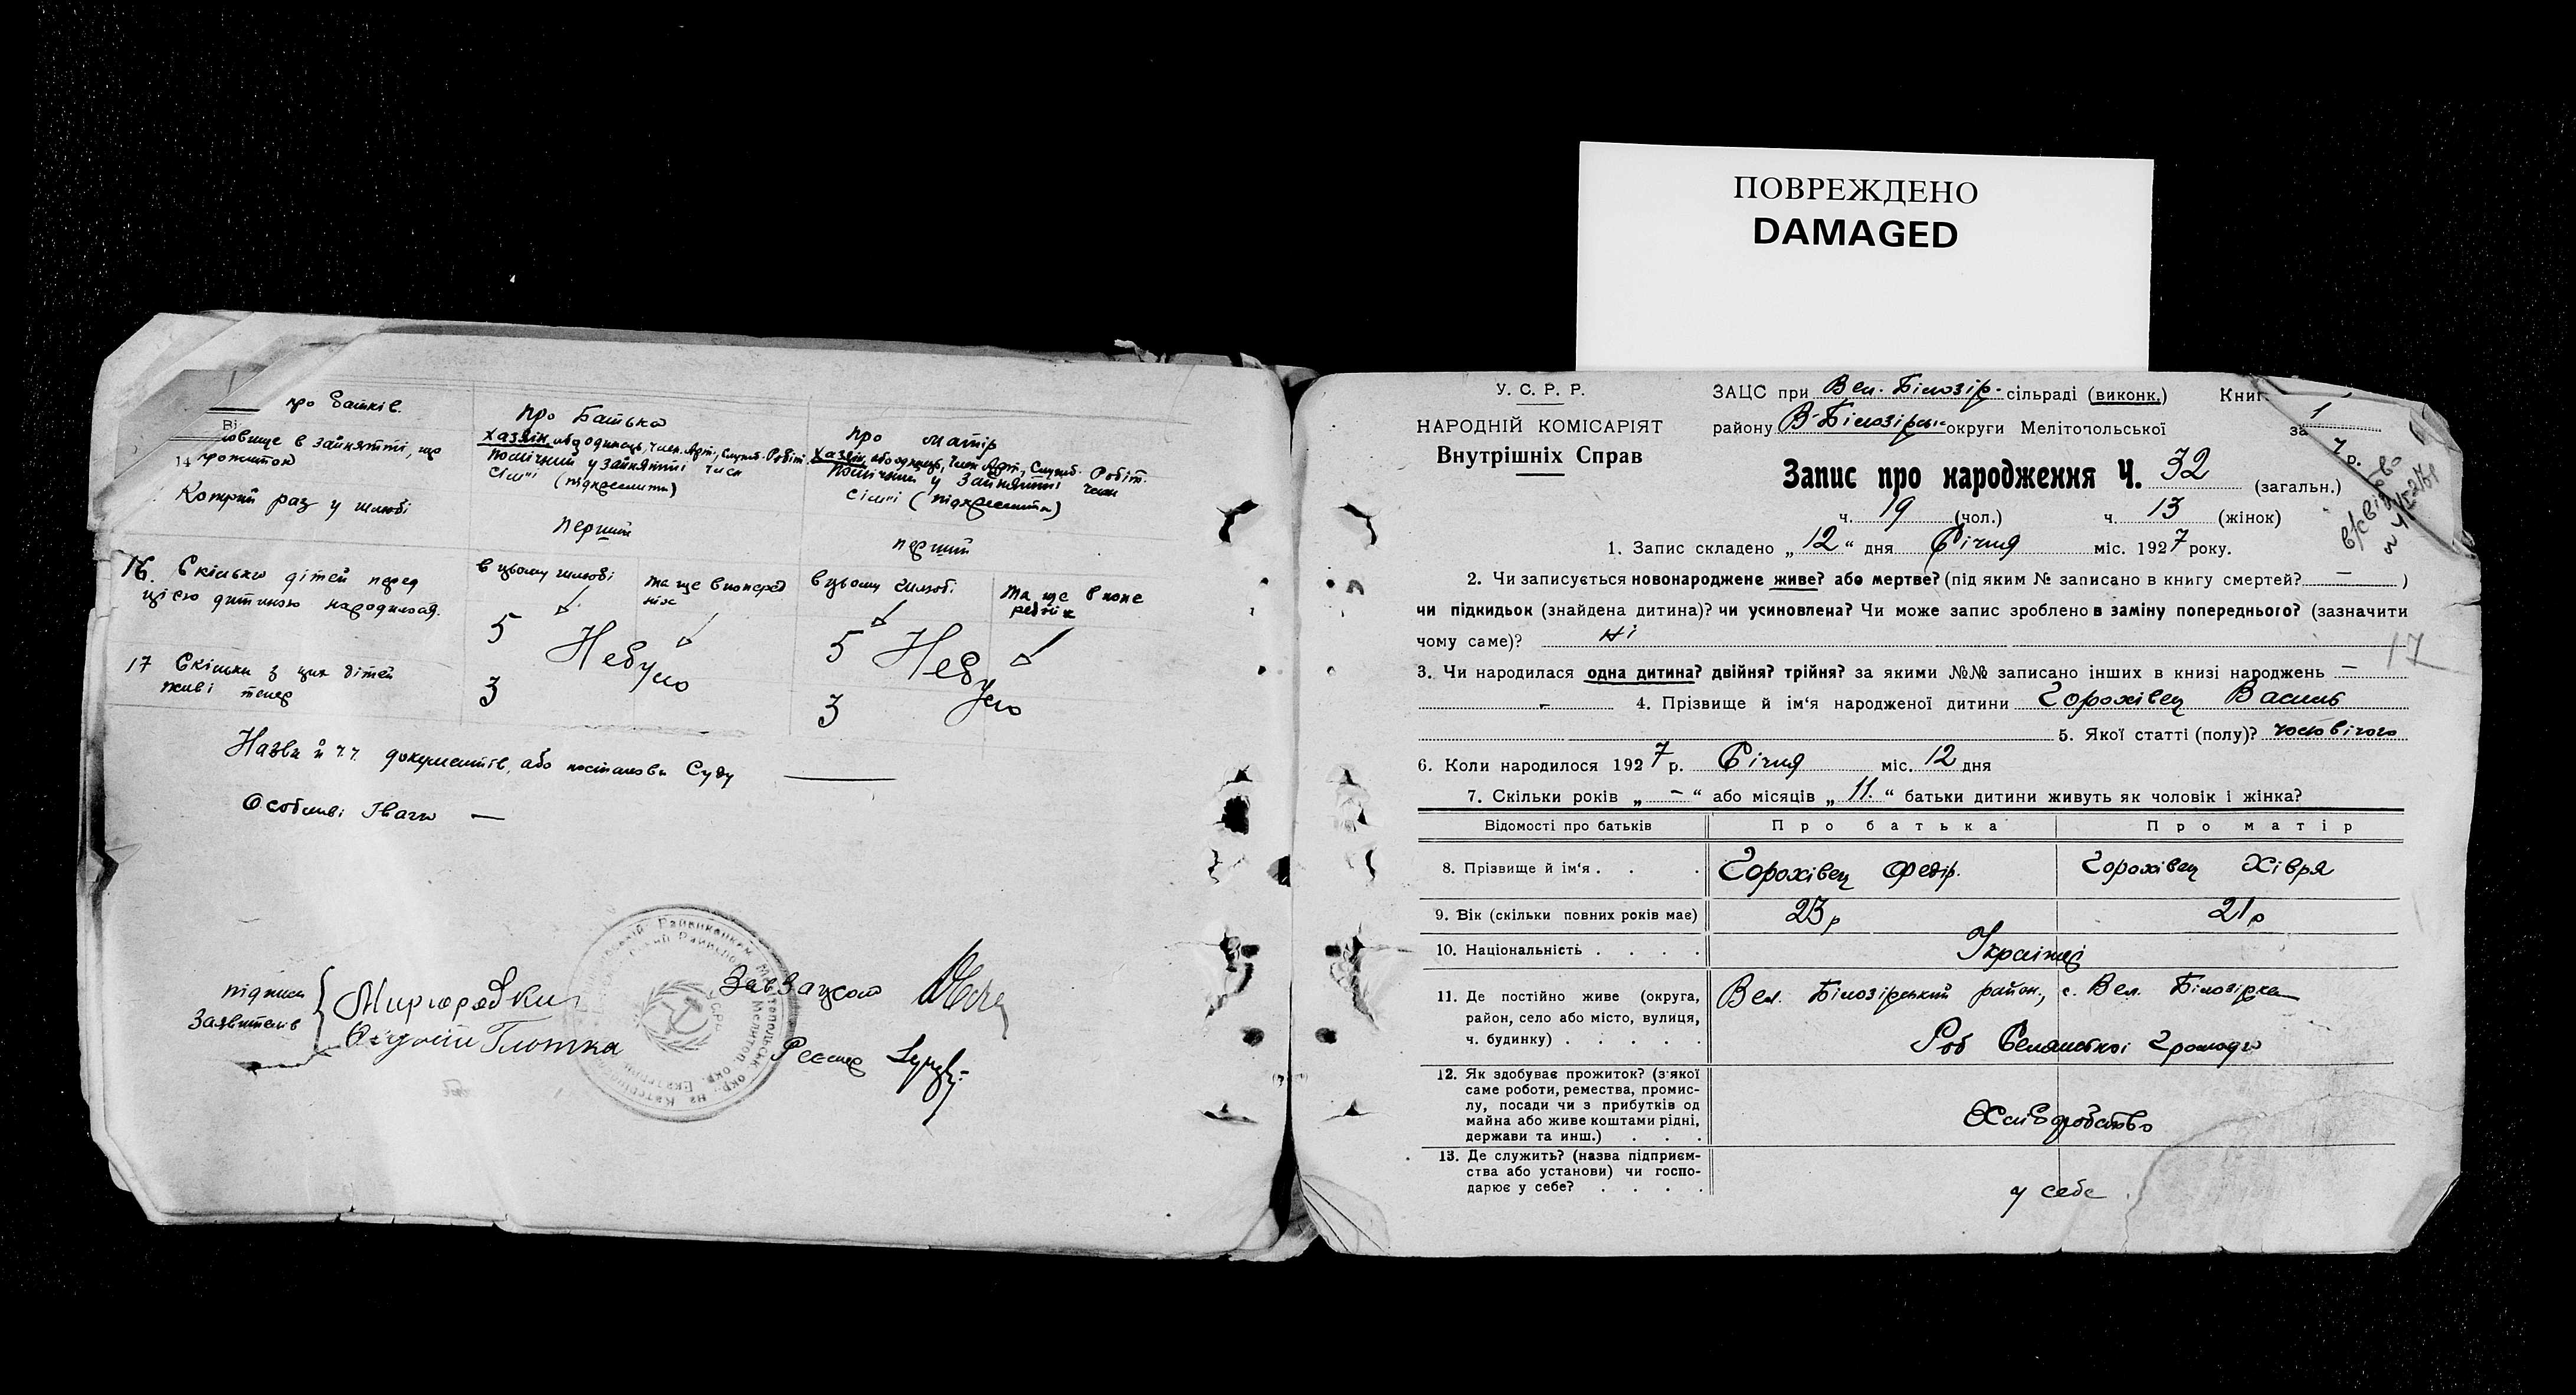 ПОВРЕЖДЕНО
DAMAGED
про батьків.
про Батька
про матір
14
Хазяін, або одинець, член Арт., Служб. Робіт.
Помічний у зайнятті член
сімʼї (підкреслити)
Хазяін, або одинець, член Арт., Служб. Робіт.
Помічний у зайнятті член
сімʼї (підкреслити)
Котрий раз у шлюбі
перший
перший
16. Скільки дітей перед
цією дитиною народилося.
в цьому шлюбі
та ще в поперед
ніх
в цьому шлюбі
та ще в попе
редніх
5
Не було
5
Не було
17 Скільки з цих дітей
живі тепер
3
3
Назва й ч.ч. документів, або постанови Суду —
Особливі Уваги —
Підписи
Заявителів
Глотка
Зав Загсом
Реєстр
У. С. Р. Р.
НАРОДНІЙ КОМІСАРІЯТ
Внутрішніх Справ
ЗАЦС при Вел. Білозір. сільраді (виконк.) Книг 1
району В-Білозірськ округи Мелітопольської за 7 р.
Запис про народження Ч. 32 (загальн.)
ч. 19 (чол.) ч. 13 (жінок)
1. Запис складено „ 12 “ дня Січня міс. 1927 року.
2. Чи записується новонароджене живе? або мертве? (під яким № записано в книгу смертей? — )
чи підкидьок (знайдена дитина)? чи усиновлена? Чи може запис зроблено в заміну попереднього? (зазначити
чому саме)? ні
17
3. Чи народилася одна дитина? двійня? трійня? за якими №№ записано інших в книзі народжень —
- 4. Прізвище й ім'я народженої дитини Горохівец Василь
5. Якої статті (полу)? чоловічого
6. Коли народилося 1927 р. Січня міс. 12 дня
7. Скільки років „ - “ або місяців „ 11. “ батьки дитини живуть як чоловік і жінка?
Відомості про батьків
Про батька
Про матір
8. Прізвище й ім'я . . .
Горохівец Федір.
Горохівец Хівря
9. Вік (скільки повних років має)
23 р
21 р
10. Національність . . . .
Українці
11. Де постійно живе (округа,
район, село або місто, вулиця,
ч. будинку) . . . . .
Вел. Білозірський район, с. Вел. Білозірка
Роб Селянської Громади
12. Як здобуває прожиток? (з якої
саме роботи, ремества, промис-
лу, посади чи з прибутків од
майна або живе коштами рідні,
держави та инш.) . . .
Хліборобство
13. Де служить? (назва підприєм-
ства або установи) чи госпо-
дарює у себе? . . . .
у себе